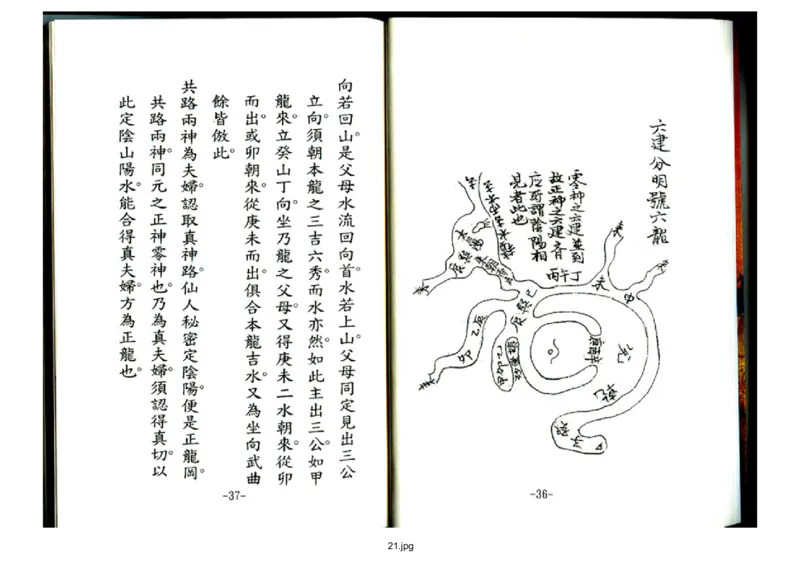 六建分明號六龍
零神之六建並到
故正神之六建齊
应所謂陰陽相
見者此也
丙午丁
乾
-36-
向若回山。是父母水流回向首。水若上山。父母同定見出三公
立向。須朝本龍之三吉六秀。而水亦然。如此主出三公。如甲
龍來。立癸山丁向。坐乃龍之父母。又得庚未二水朝來。從卯
而出。或卯朝來。從庚未而出。俱合本龍吉水。又為坐向武曲
餘皆倣此。
共路兩神為夫婦。認取真神路。仙人秘密定陰陽。便是正龍岡。
共路兩神。同元之正神零神也。乃為真夫婦。須認得真切。以
此定陰山陽水。能合得真夫婦。方為正龍也。
-37-
21.jpg